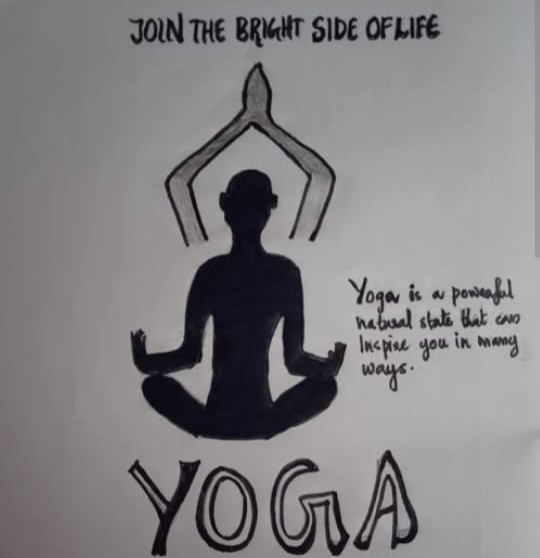 JOIN THE BRIGHT SIDE OF LIFE
Yoga is a powerful
natural state that can
Inspire you in many
ways.
YOGA